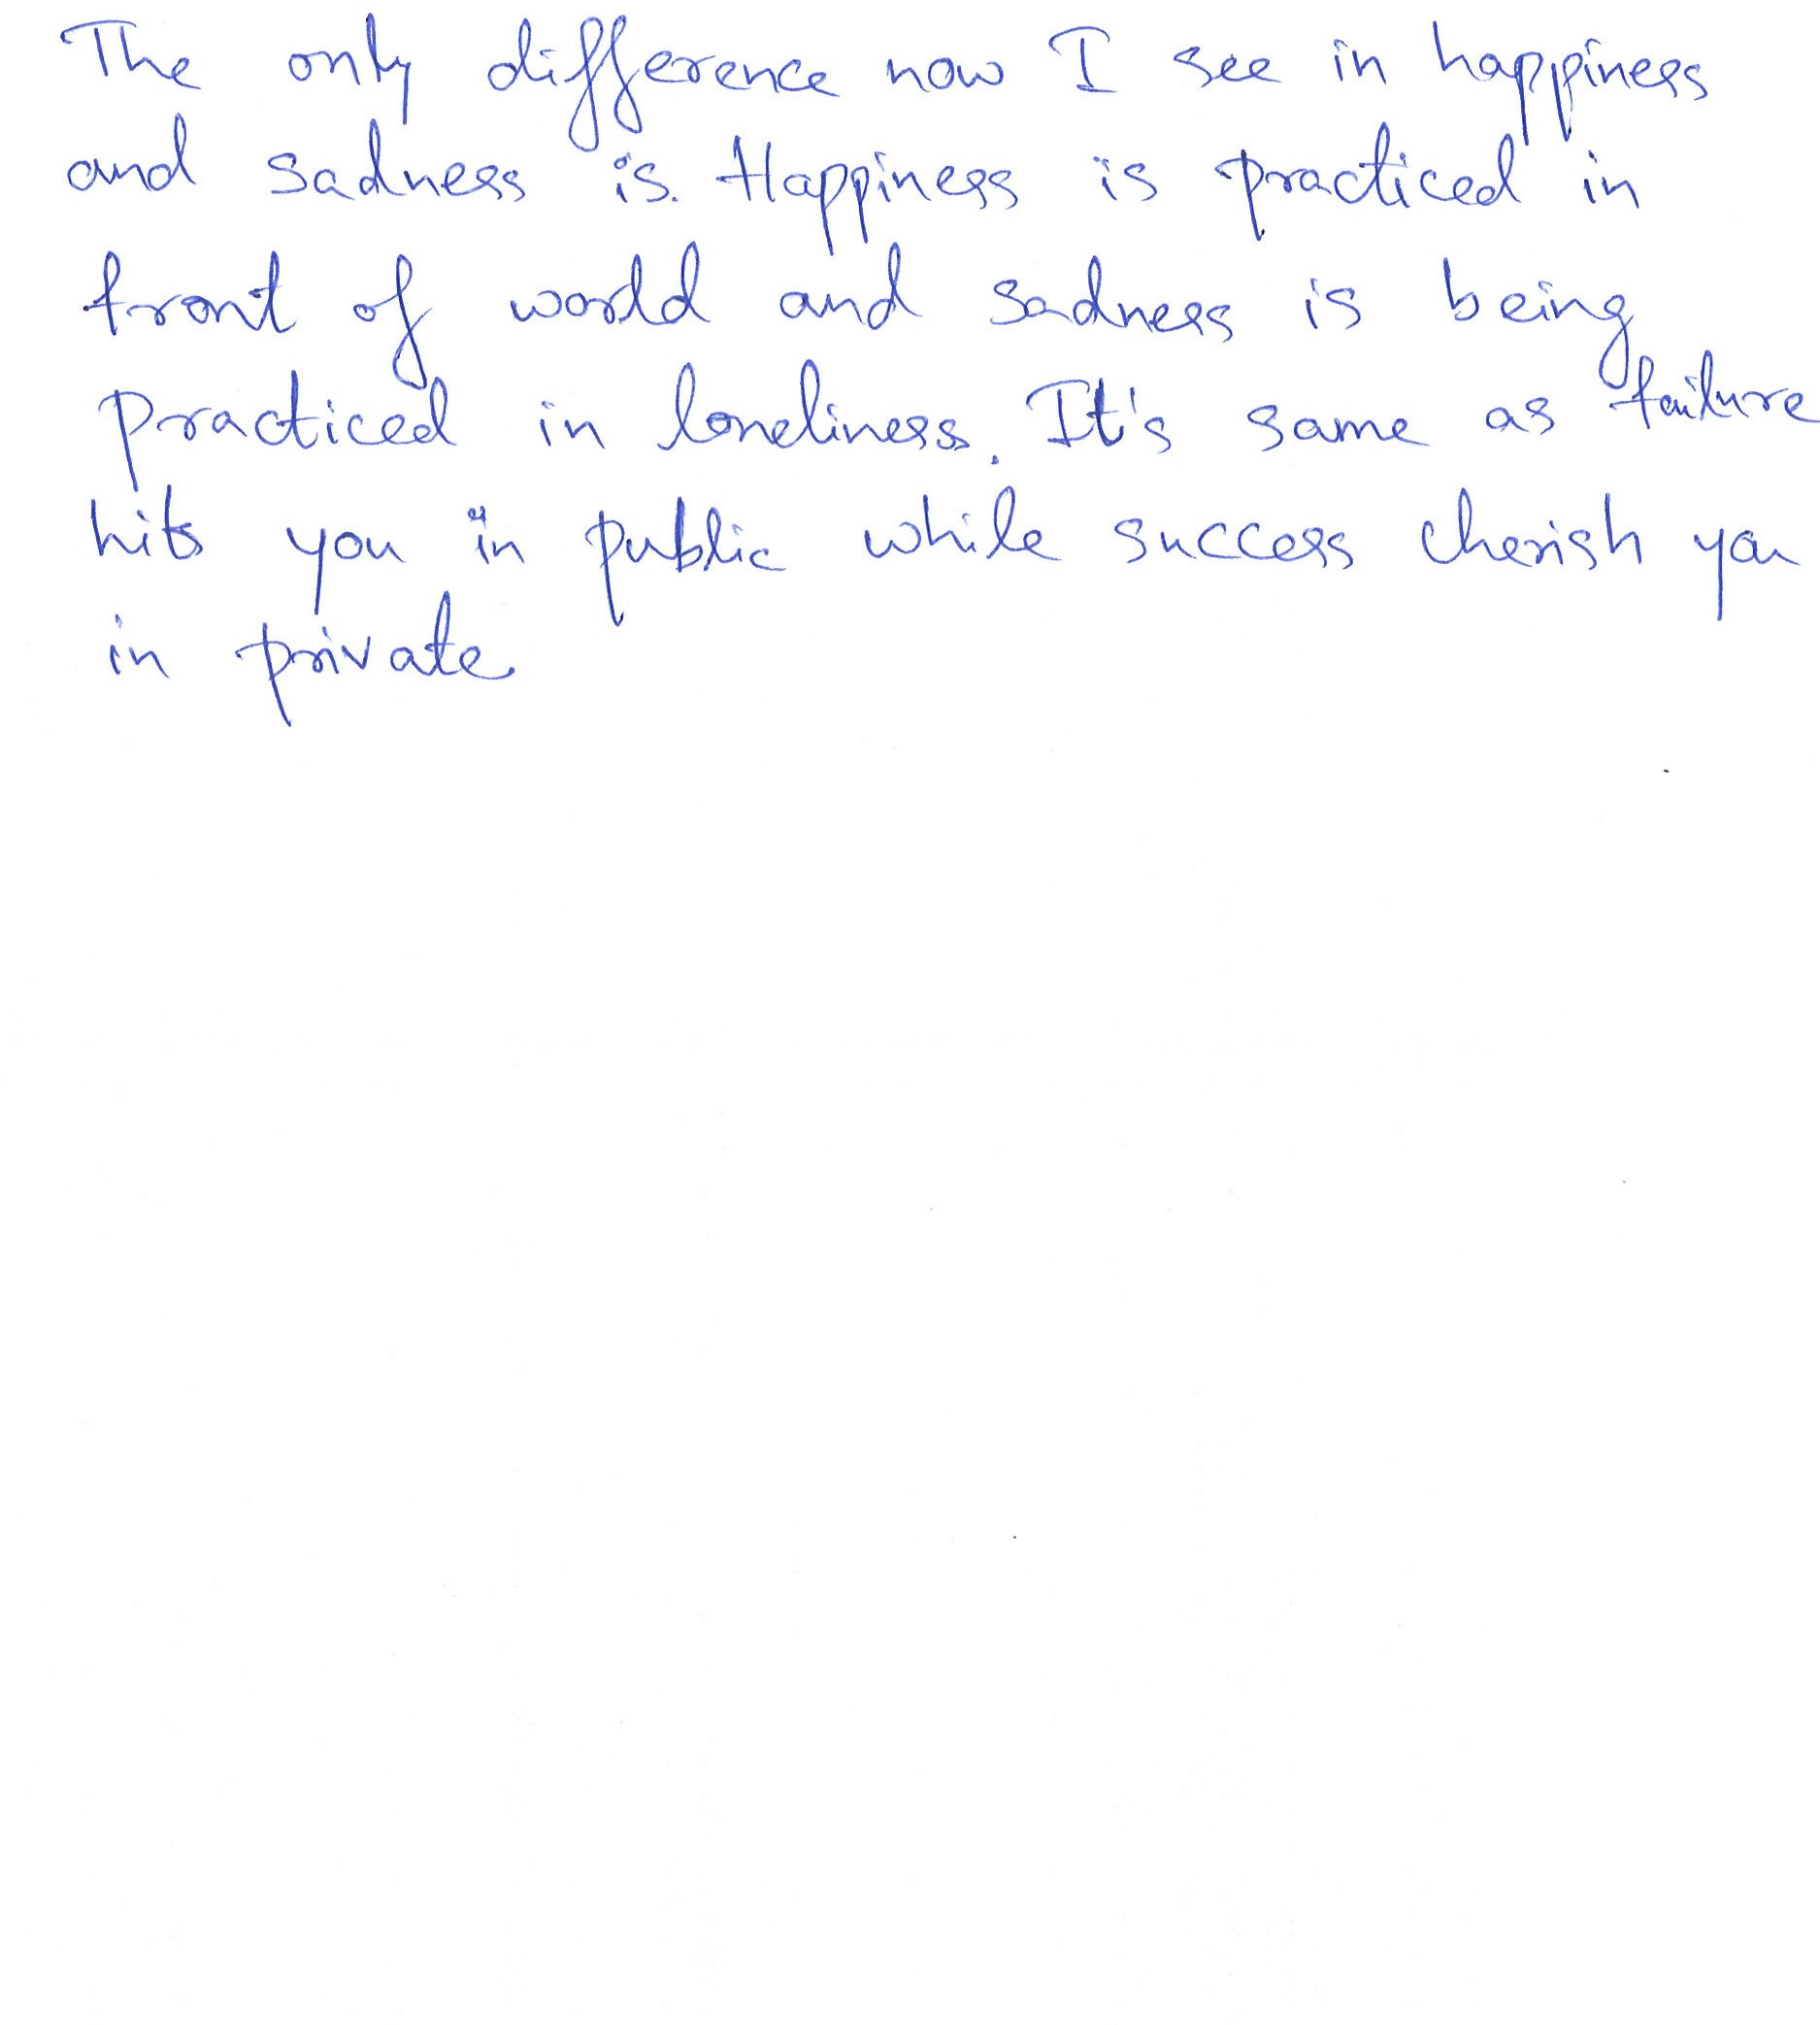 The only difference now I see in happiness
and sadness is. Happiness is practiced in
front of world and sadness is being
practiced in loneliness. It's same as failure
hits you in public while success cherish you
in private.